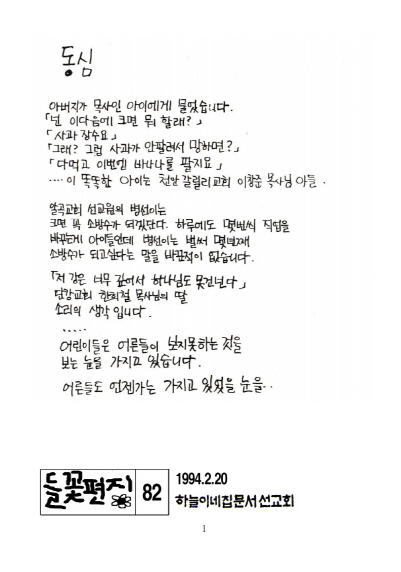 동심
아버지가 목사인 아이에게 물었습니다.
「넌 이다음에 크면 뭐 할래?」
「사과 장수요」
「그래? 그럼 사과가 안팔려서 망하면?」
「다먹고 이번엔 바나나를 팔지요」
.... 이 똑똑한 아이는 천안 갈릴리교회 이창준 목사님 아들.
알곡교회 선교원의 병선이는
크면 꼭 소방수가 되겠단다. 하루에도 몇번씩 직업을
바꾸는게 아이들인데 병선이는 벌써 몇번째
소방수가 되고싶다는 말을 바꾼적이 없습니다.
「저 강은 너무 깊어서 하나님도 못건넌다」
단강교회 한희철 목사님의 딸
소리의 생각입니다.
.....
어린이들은 어른들이 보지못하는 것을
보는 눈을 가지고 있습니다.
어른들도 언젠가는 가지고 있었을 눈을..
들꽃편지
82
1994.2.20
하늘이네집문서선교회
1